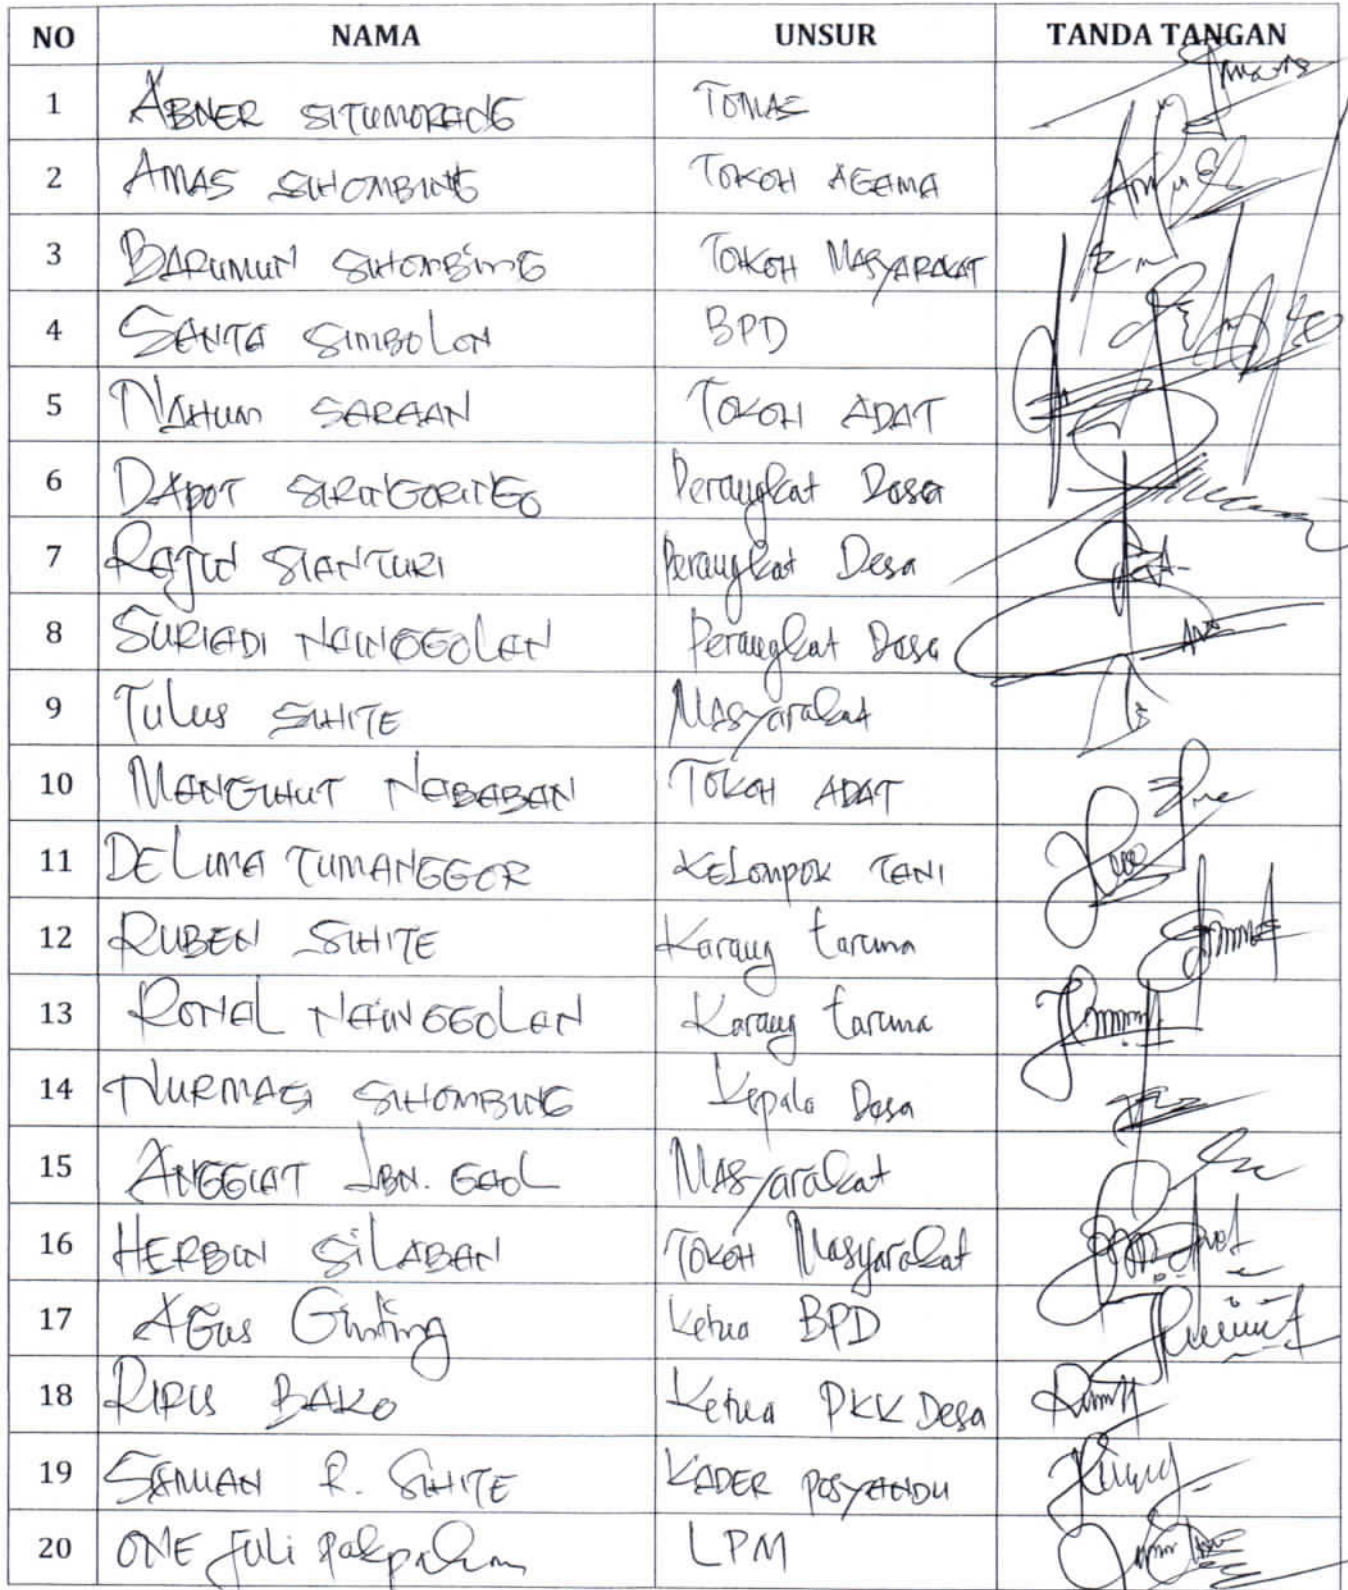 NO NAMA UNSUR TANDA TANGAN
1 ABNER SITUMORANG TOMAS
2 AMAS SIHOMBING TOKOH AGAMA
3 BARUMUN SIHOMBING TOKOH MASYARAKAT
4 SANTA SIMBOLON BPD
5 NAHUM SARAAN TOKOH ADAT
6 DAPOT SIRINGORINGO Perangkat Desa
7 RAJIN SIANTURI Perangkat Desa
8 SURIADI NAINGGOLAN Perangkat Desa
9 TULUS SIHITE Masyarakat
10 MANGIHUT NABABAN TOKOH ADAT
11 DELIMA TUMANGGOR KELOMPOK TANI
12 RUBEN SIHITE Karang taruna
13 RONAL NAINGGOLAN Karang taruna
14 NURMASI SIHOMBING Kepala Desa
15 ANGGIAT LBN. GAOL Masyarakat
16 HERBIN SILABAN TOKOH Masyarakat
17 AGUS Ginting Ketua BPD
18 RIRIS BAKO Ketua PKK Desa
19 SANIAN R. SIHITE KADER POSYANDU
20 ONE JULI Pakpahan LPM